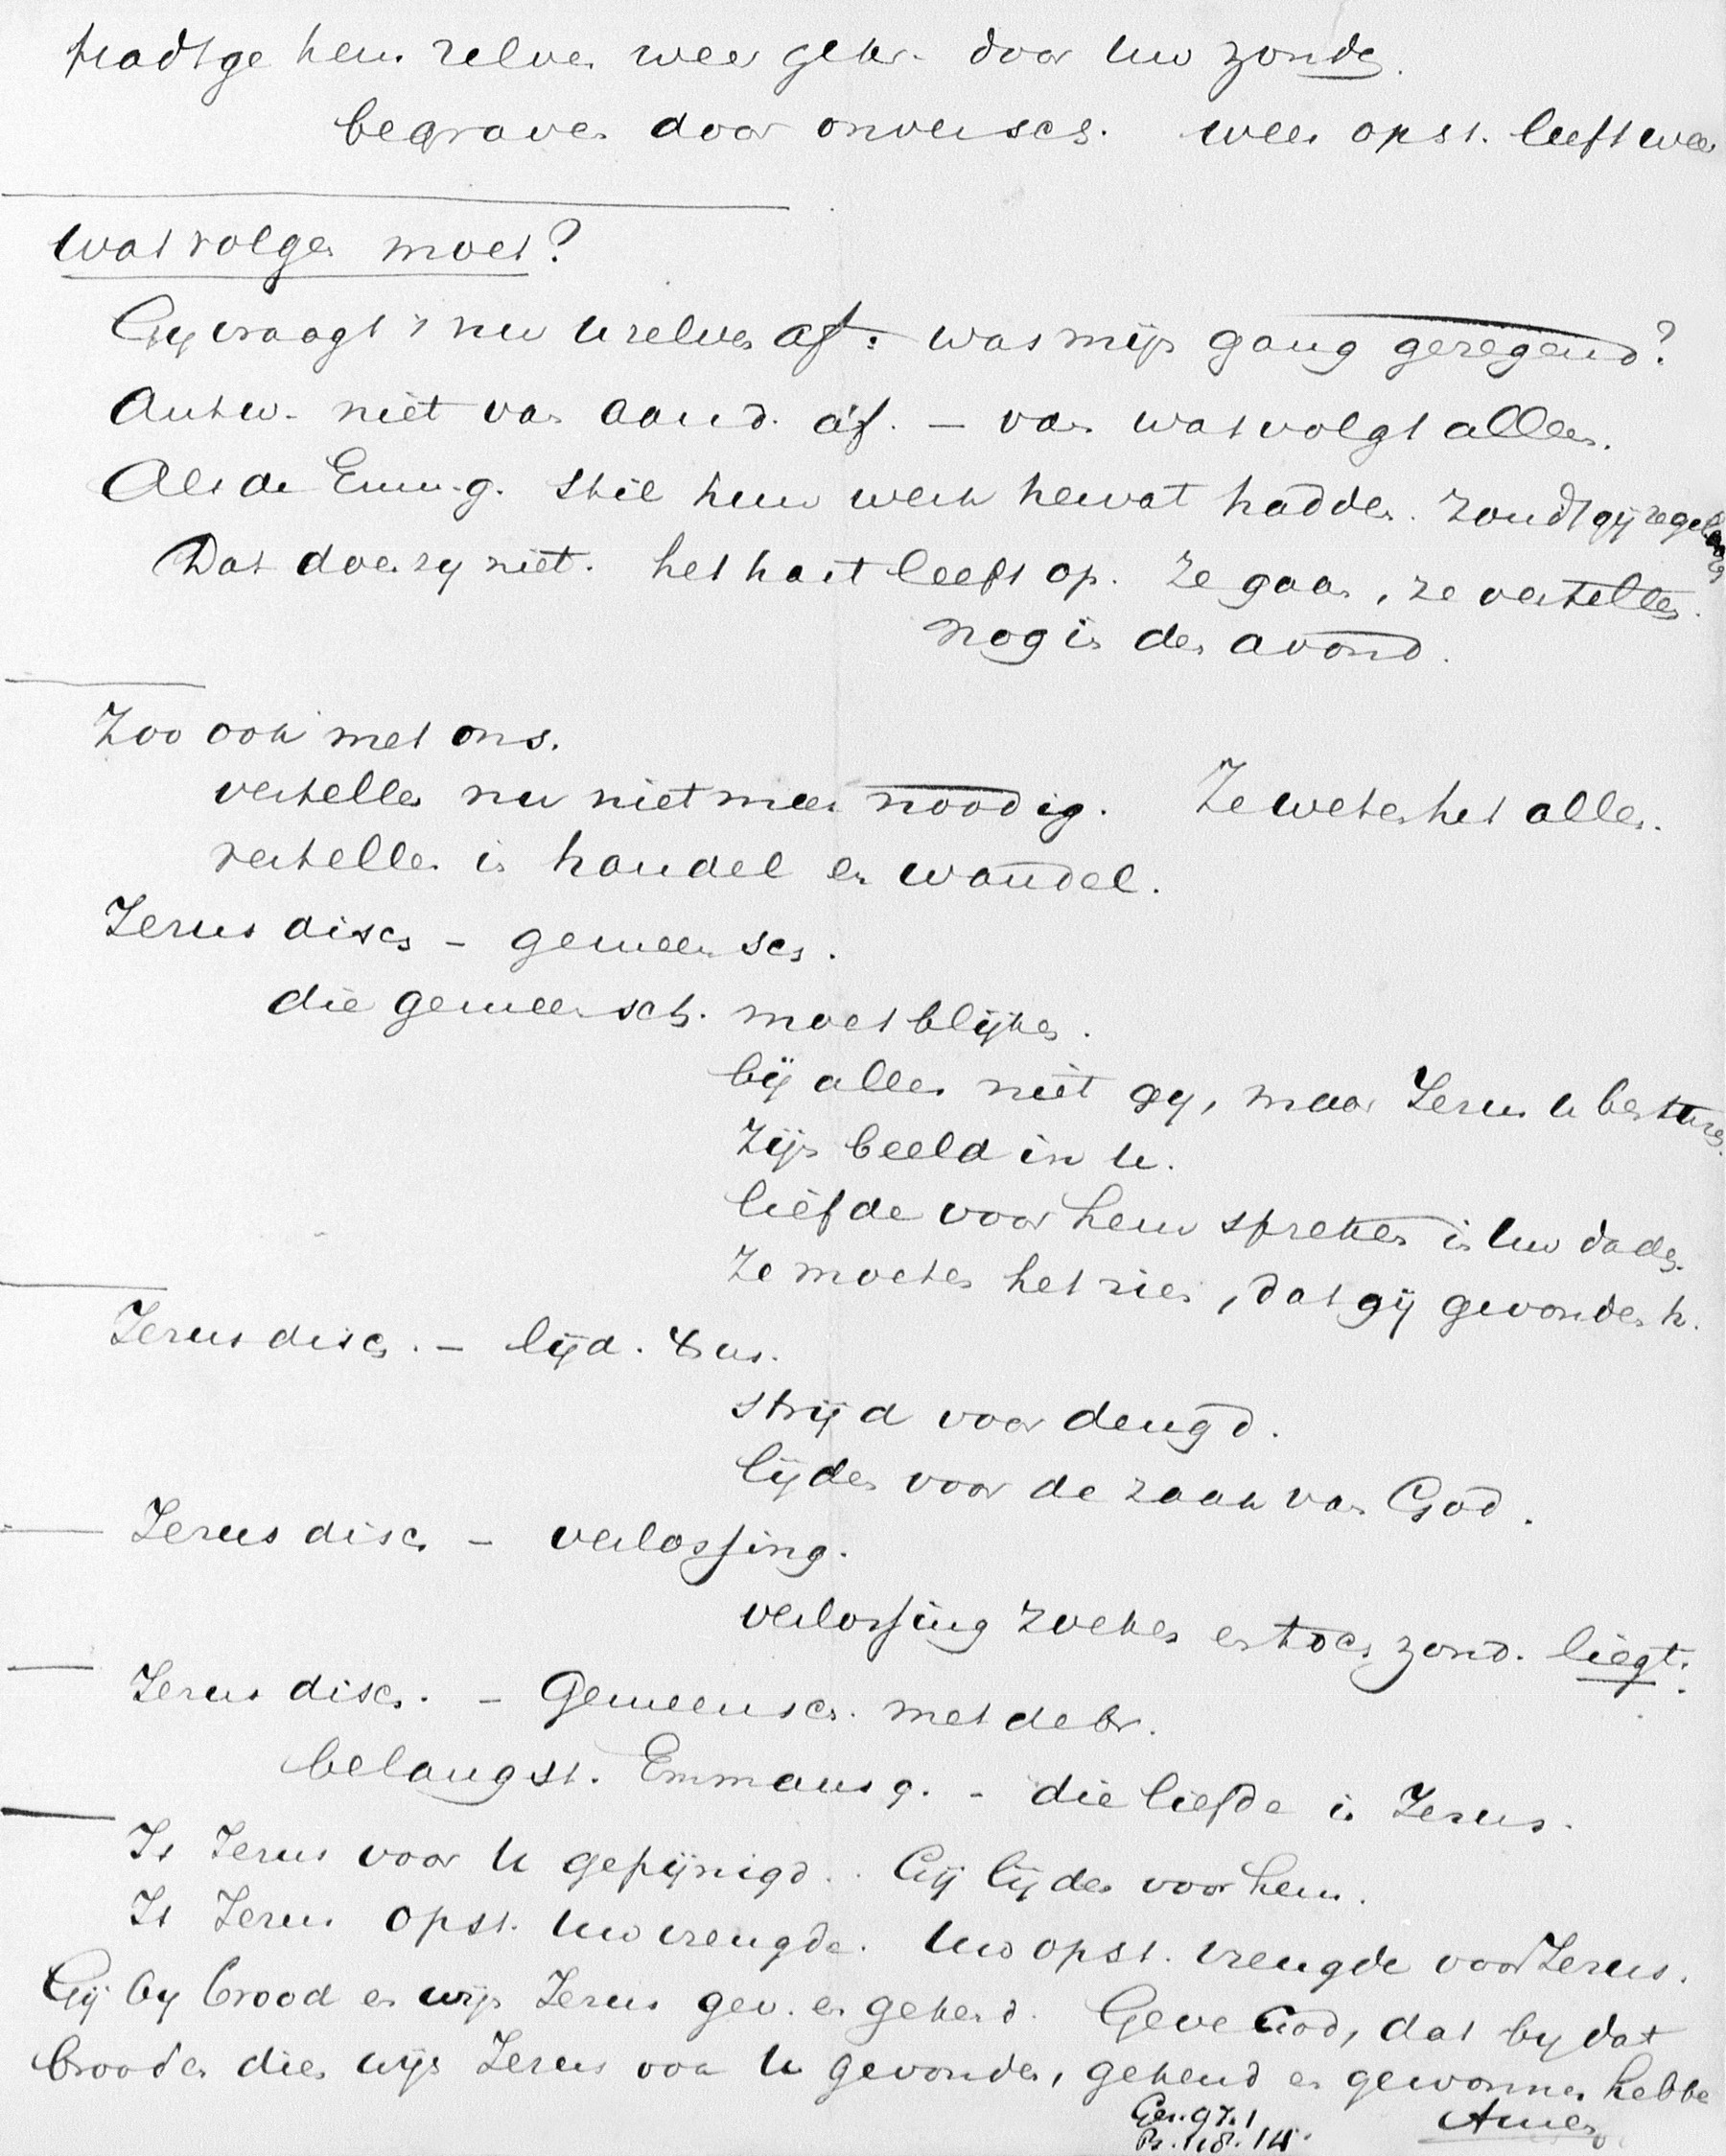 hadt ge hem zelven weer gekr. door Uw zonde.
begraven door onversch. weer opst. leeft weer
Wat volgen moet?
Gij vraagt 't nu U zelven af: was mijn gang gezegend?
Antw. niet van aand. af. — van wat volgt alleen.
Als de Emm.g. stil hun werk hervat hadden. Zoudt gij zegen
Dat doen zy niet. het hart leeft op. Ze gaan, ze vertellen.
nog in den avond.
Zoo ook met ons.
vertellen nu niet meer noodig. Ze weten het allen.
vertellen in handel en wandel.
Jezus disch – gemeensch.
die gemeensch. moet blijken.
bij alles niet gy, maar Jezus U besturen.
Zijn beeld in U.
liefde voor hem spreken in Uw daden.
Ze moeten het zien, dat gij gevonden h.
Jezus disch. – lijd.
strijd voor deugd.
lijden voor de zaak van God.
Jezus disch – verlossing.
verlossing zoeken en toch zond. liegt.
Jezus disch. – Gemeensch. met de br.
belangst. Emmausg. – die liefde in Jezus.
Is Jezus voor U gepijnigd. Gij lijden voor hem.
Is Jezus opst. Uw vreugde. Uw opst. vreugde voor Jezus.
Gij by brood en wijn Jezus gev. en gekend. Geve God, dat by dat
brood en dien wijn Jezus ook U gevonden, gekend en gewonnen hebbe
Gez. 97.1 Amen
Ps. 118.14.